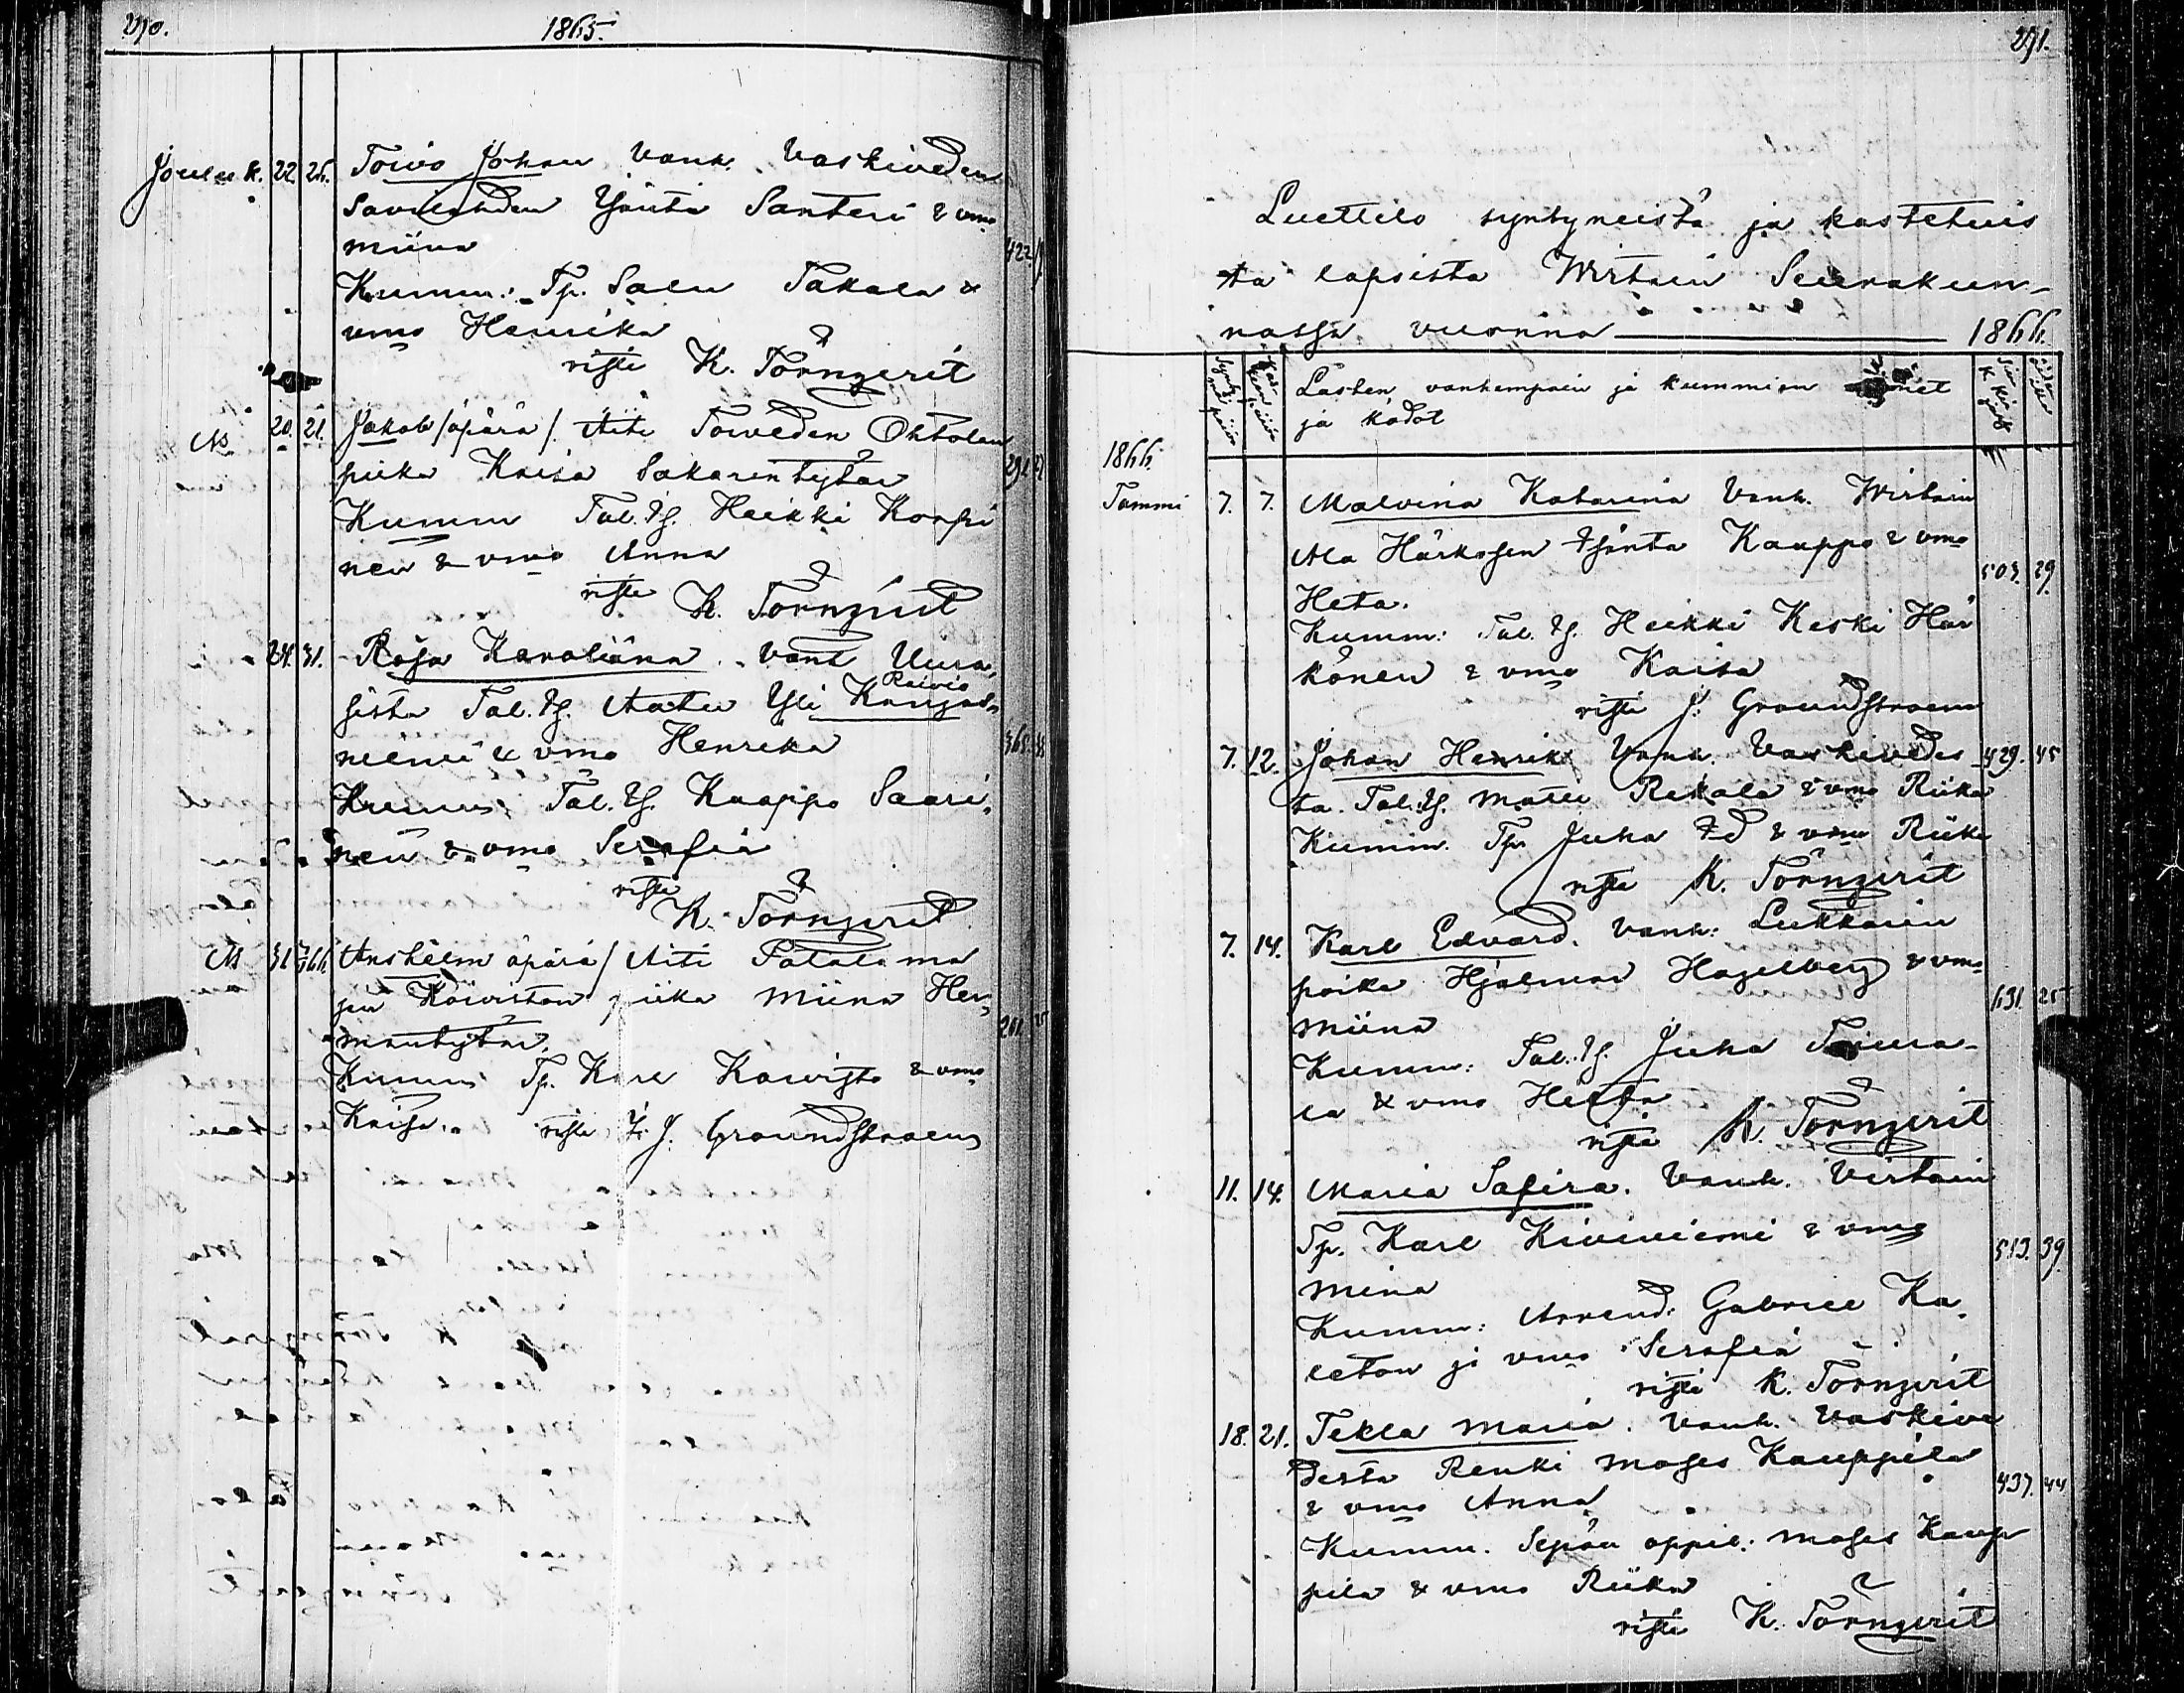 290.
1865.
Jouluk. 22. 26. Toivo Johan Vanh. Vaskiveden
Savilahden Ysäntä Santeri & vmo
Miina 422.
Kumm: Tp. Salu Takala &
vmo Henrika
risti K. Törnqvist
20. 21. Jakob /äpärä/. Äiti Toiveden Ohtolan
piika Kaisa Sakarintytär
Kumm Tal. Ys. Heikki Korpi
nen & vmo Anna
risti K. Törnqvist
24. 31. Rosa Karoliina. Vanh Uura,
Reivis
sista Tal. Ys. Aatu Yli Kangas,
niemi & vmo Henrika 365.
Kumm Tal. Ys. Kaappo Saari,
nen & vmo Serafia
risti
K. Törnqvist
31 Anshelm äpärä/ Äiti Patalama
jan Koiviston piika Miina Her,
mantytär.
Kumm Tp. Karl Koivisto & vmo
Kaisa. risti J. Groundstroem
291.
Luettelo syntyneistä ja kastetuis
ta lapsista Wirtain Seurakun-
nassa vuonna 1866.
Lasten, vanhempain ja kummien nimet
ja kodot
1866.
Tammi 7. 7. Malvina Katarina Vanh. Wirtain
Ala Härkösen Ysäntä Kauppo & vmo
Heta. 503. 29.
Kumm: Tal. Ys. Heikki Keski Här
könen & vmo Kaisa
risti J. Groundstroem
7. 12. Johan Henrik Vanh. Vaskivedes 429. 45
ta. Tal. Ys. Matti Rekola & vmo Riika
Kumm. Tp. Juha & vmo Riika
risti K. Törnqvist
7. 14. Karl Edvard. Vanh: Lukkarin
poika Hjalmar Hagelberg & vmo
Miina 631. 25
Kumm: Tal. Ys. Juha Toiva-
la & vmo Heta
risti K. Törnqvist
11. 14. Maria Safira. Vanh. Virtain
Tp. Karl Kiviniemi & vmo
Mina 513. 39.
Kumm: Arrend: Gabriel Ka,
leton ja vmo Serafia
risti K. Törnqvist
18. 21. Tekla Maria. Vanh. Vaskive
desta Renki Moses Kauppila
& vmo Anna 437. 44
Kumm. Sepän oppil: Moses Kaup
pila & vmo Riika
risti K. Törnqvist